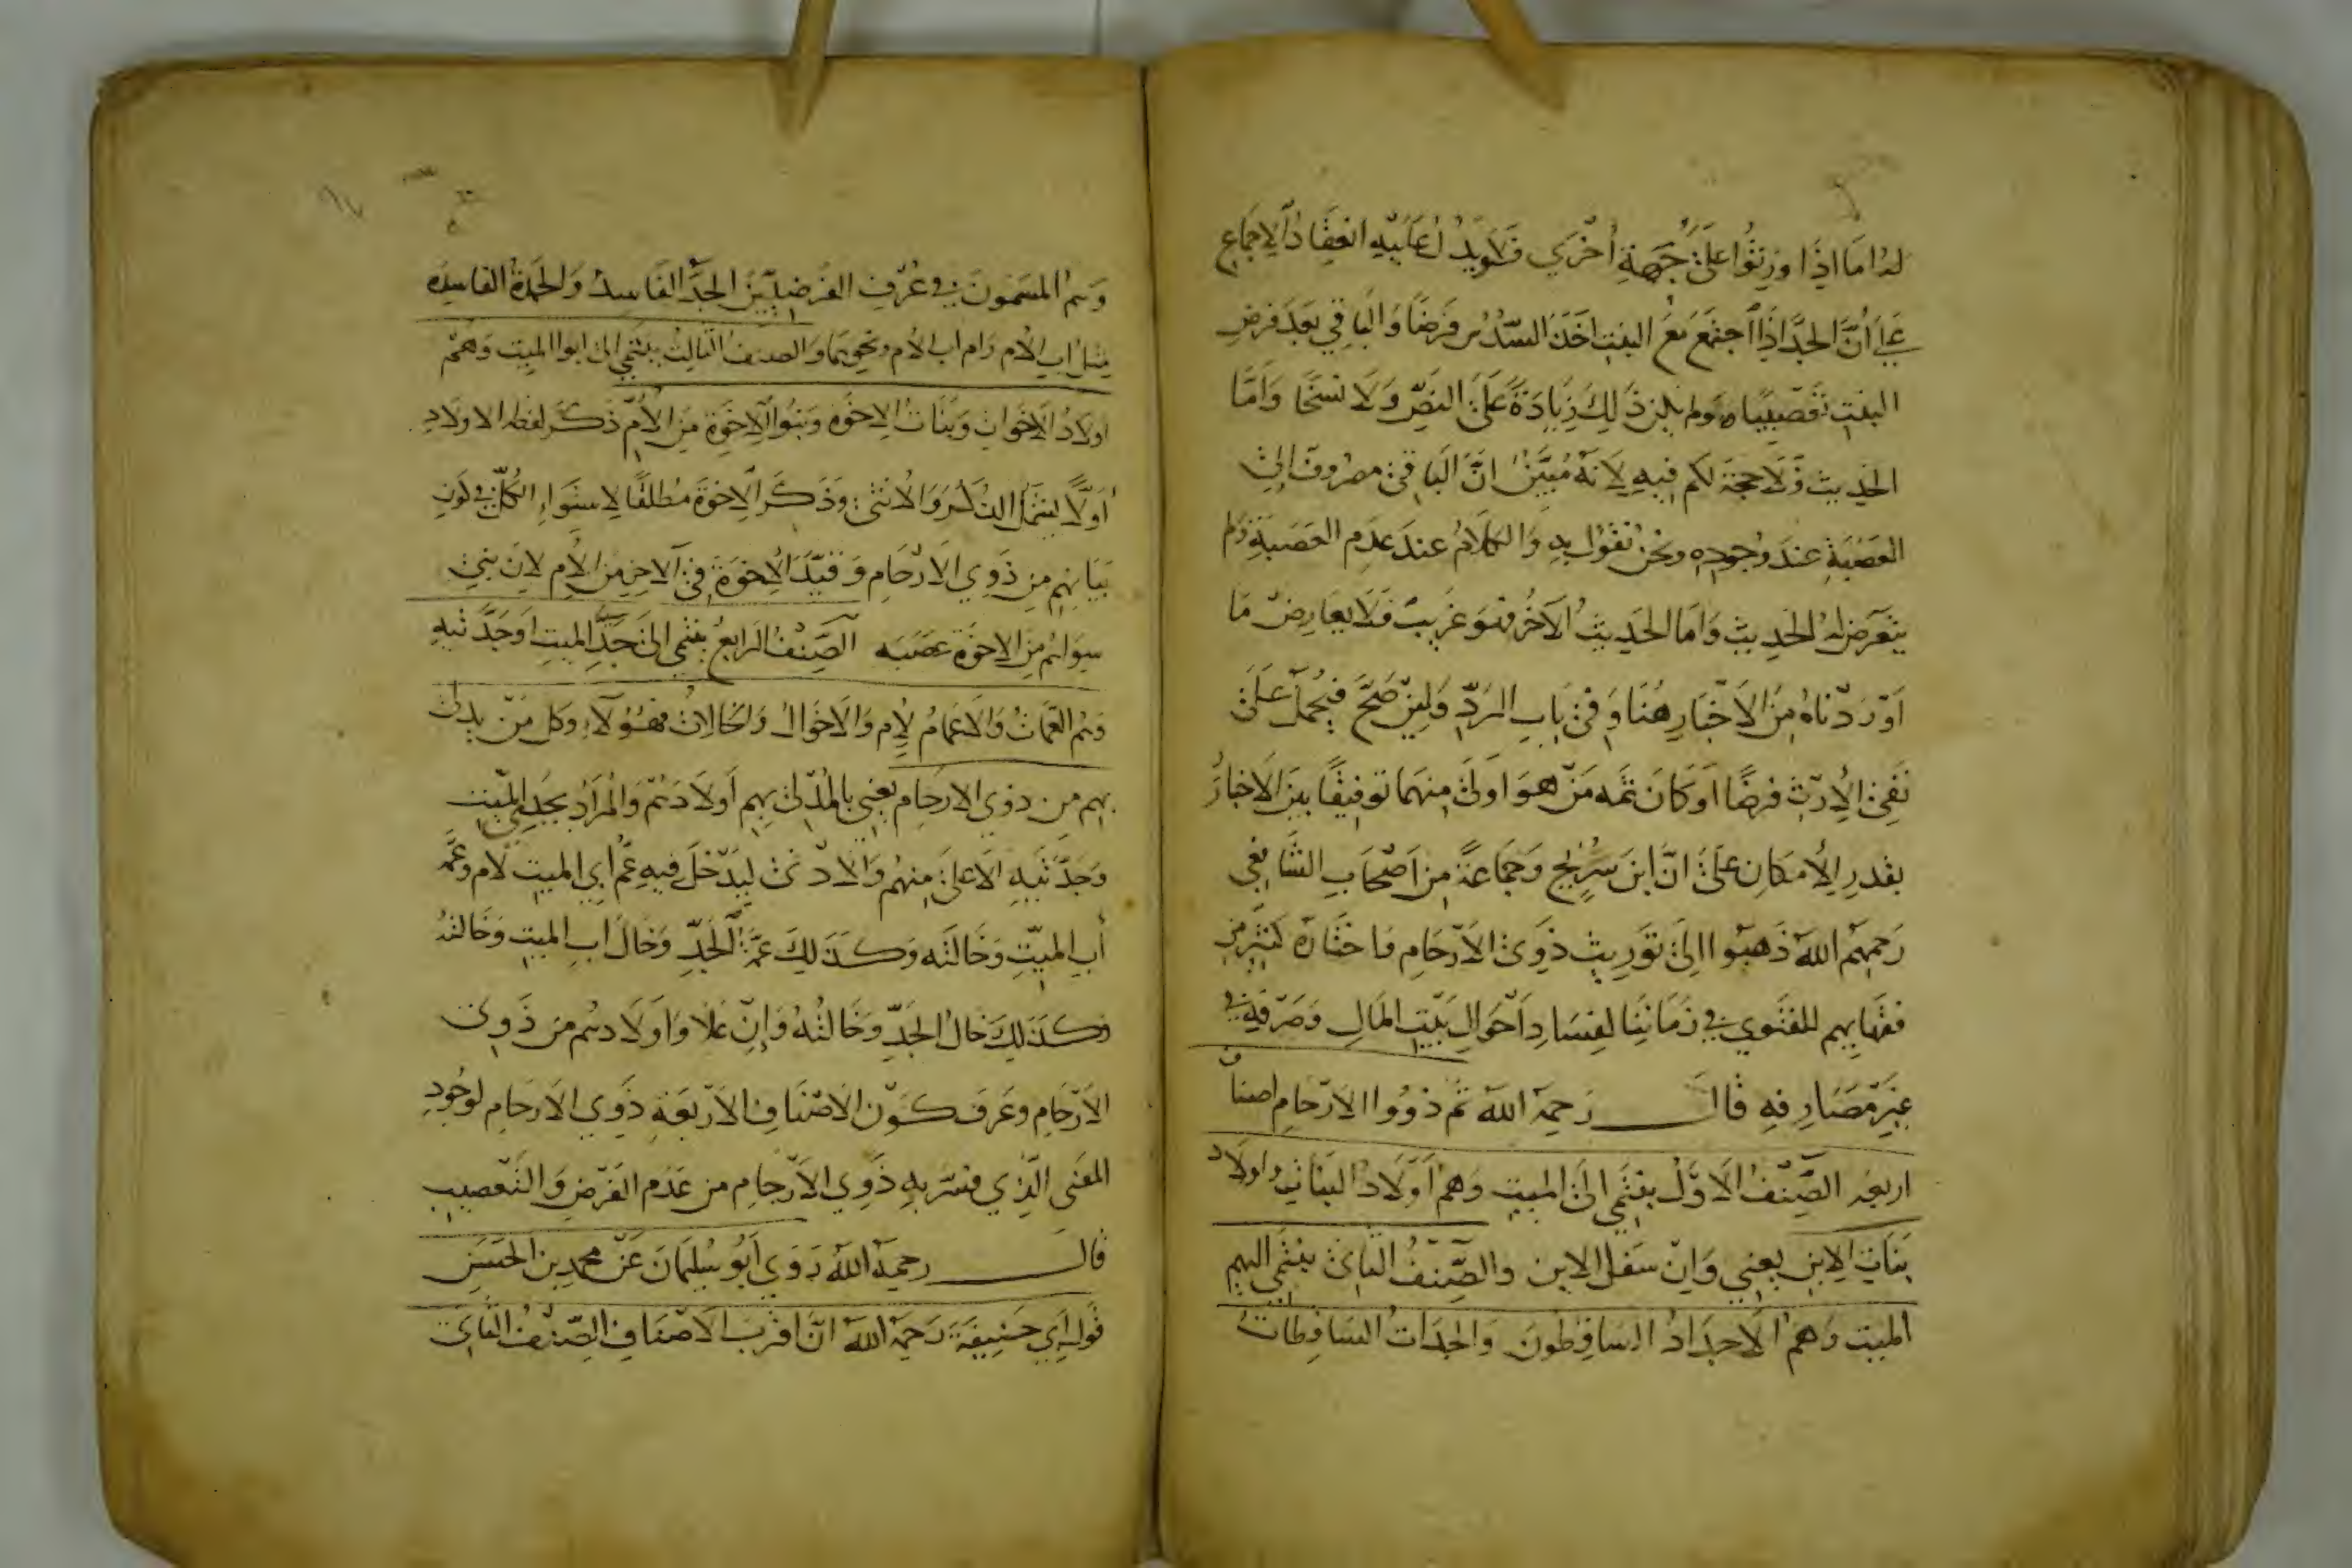 له اما اذا ورثوا على جهة اخرى فلا ويدل عليه انعقاد الاجماع
على أن الجد اذا اجتمع مع البنت اخذ السدس فرضا والباقي بعد فرض
البنت تعصيبا ولم يكن ذلك زيادة على النص ولا نسخا واما
الحديث فلا حجة لكم فيه لانه مبين ان الباقي مصروف إلى
العصبة عند وجوده ونحن نقول به والكلام عند عدم العصبة ولم
يتعرض له الحديث واما الحديث الآخر فهو غريب فلا يعارض ما
اوردناه من الاخبار هنا وفي باب الرد ولئن صح فيحمل على
نفي الإرث فرضا او كان ثمه من هو اولى منهما توفيقا بين الاخبار
بقدر الإمكان على ان ابن سريج وجماعة من اصحاب الشافعي
رحمهم الله ذهبوا الى توريث ذوي الارحام واختاره كثير من
فقهايهم للفتوي في زماننا لفساد احوال بيت المال وصرفه في
غير مصارفه قال رحمه الله ثم ذووا الارحام اصناف
اربعه الصنف الاول ينتمي الى الميت وهم اولاد البنات واولاد
بنات الابن يعني وان سفل الابن والصنف الثاني ينتمي اليهم
الميت وهم الاجداد الساقطون والجدات الساقطات
وهم المسمون في عرف الفرضيين الجد الفاسد والجدة الفاسده
مثل اب الام وام اب الام ونحوهما والصنف الثالث ينتمي الى ابوا الميت وهم
اولاد الاخوات وبنات الاخوة وبنوا الاخوة من الأم ذكر لفظه الاولاد
أولا ليشمل الذكر والانثى وذكر الاخوة مطلقا لاستواء الكل في كون
بناتهم من ذوي الارحام وقيد الإخوة في الآخر من الأم لان بني
سواهم من الاخوة عصبه الصنف الرابع ينتمي الى جد الميت او جدتيه
وهم العمات والاعمام لأم والاخوال والخالات فهؤلاء وكل من يدلى
بهم من ذوي الارحام يعني بالمدلى بهم أولادهم والمراد بجدي الميت
وجدتيه الاعلى منهم والادنى ليدخل فيه عم ابي الميت لأم وعمه
أب الميت وخالته وكذلك عمة الجد وخال اب الميت وخالته
وكذلك خال الجد وخالته وإن علا واولادهم من ذوي
الارحام وعرف كون الاصناف الاربعة ذوي الارحام لوجود
المعنى الذي فسر به ذوي الارحام من عدم الفرض والتعصيب
قال رحمه الله روي ابو سليمان عن محمد بن الحسن
قول ابي حنيفة رحمه الله ان اقرب الاصناف الصنف الثاني